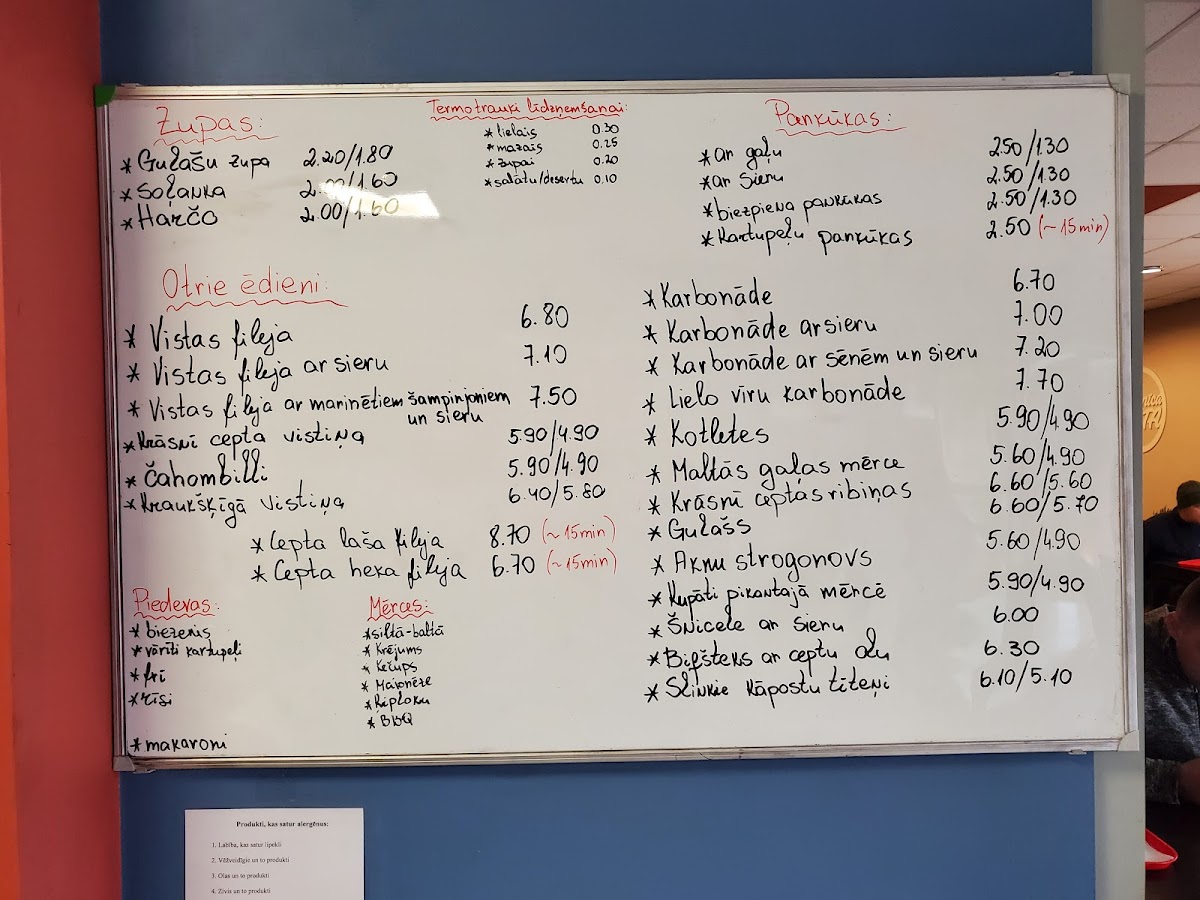 Zupas:
* Gulašu zupa 2.20/1.80
* Soļanka 2.00/1.60
* Harčo 2.00/1.60
Termotrauki līdzņemšanai:
* lielais 0.30
* mazais 0.25
* zupai 0.20
* salātu/desertu 0.10
Pankūkas:
* ar gaļu 2.50/1.30
* ar sieru 2.50/1.30
* biezpiena pankūkas 2.50/1.30
* Kartupeļu pankūkas 2.50 (~15min)
Otrie ēdieni:
* Vistas fileja 6.80
* Vistas fileja ar sieru 7.10
* Vistas fileja ar marinētiem šampinjoniem 7.50
un sieru
* Krāsnī cepta vistiņa 5.90/4.90
* Čahombilli 5.90/4.90
* Kraukšķīgā vistiņa 6.40/5.80
* Cepta laša fileja 8.70 (~15min)
* Cepta heka fileja 6.70 (~15min)
* Karbonāde 6.70
* Karbonāde ar sieru 7.00
* Karbonāde ar sēnēm un sieru 7.20
* Lielo vīru karbonāde 7.70
* Kotletes 5.90/4.90
* Maltās gaļas mērce 5.60/4.90
* Krāsnī ceptas ribiņas 6.60/5.60
* Gulašs 6.60/5.70
* Aknu strogonovs 5.60/4.90
* Kupāti pikantajā mērcē 5.90/4.90
* Šnicele ar sieru 6.00
* Bifšteks ar ceptu olu 6.30
* Slinkie kāpostu tīteņi 6.10/5.10
Piedevas:
* biezenis
* vārīti kartupeļi
* frī
* rīsi
* makaroni
Mērces:
* siltā-baltā
* Krējums
* Kečups
* Majonēze
* Ķiploku
* BBQ
Produkti, kas satur alergēnus:
1. Labība, kas satur lipekli
2. Vēžveidīgie un to produkti
3. Olas un to produkti
4. Zivis un to produkti